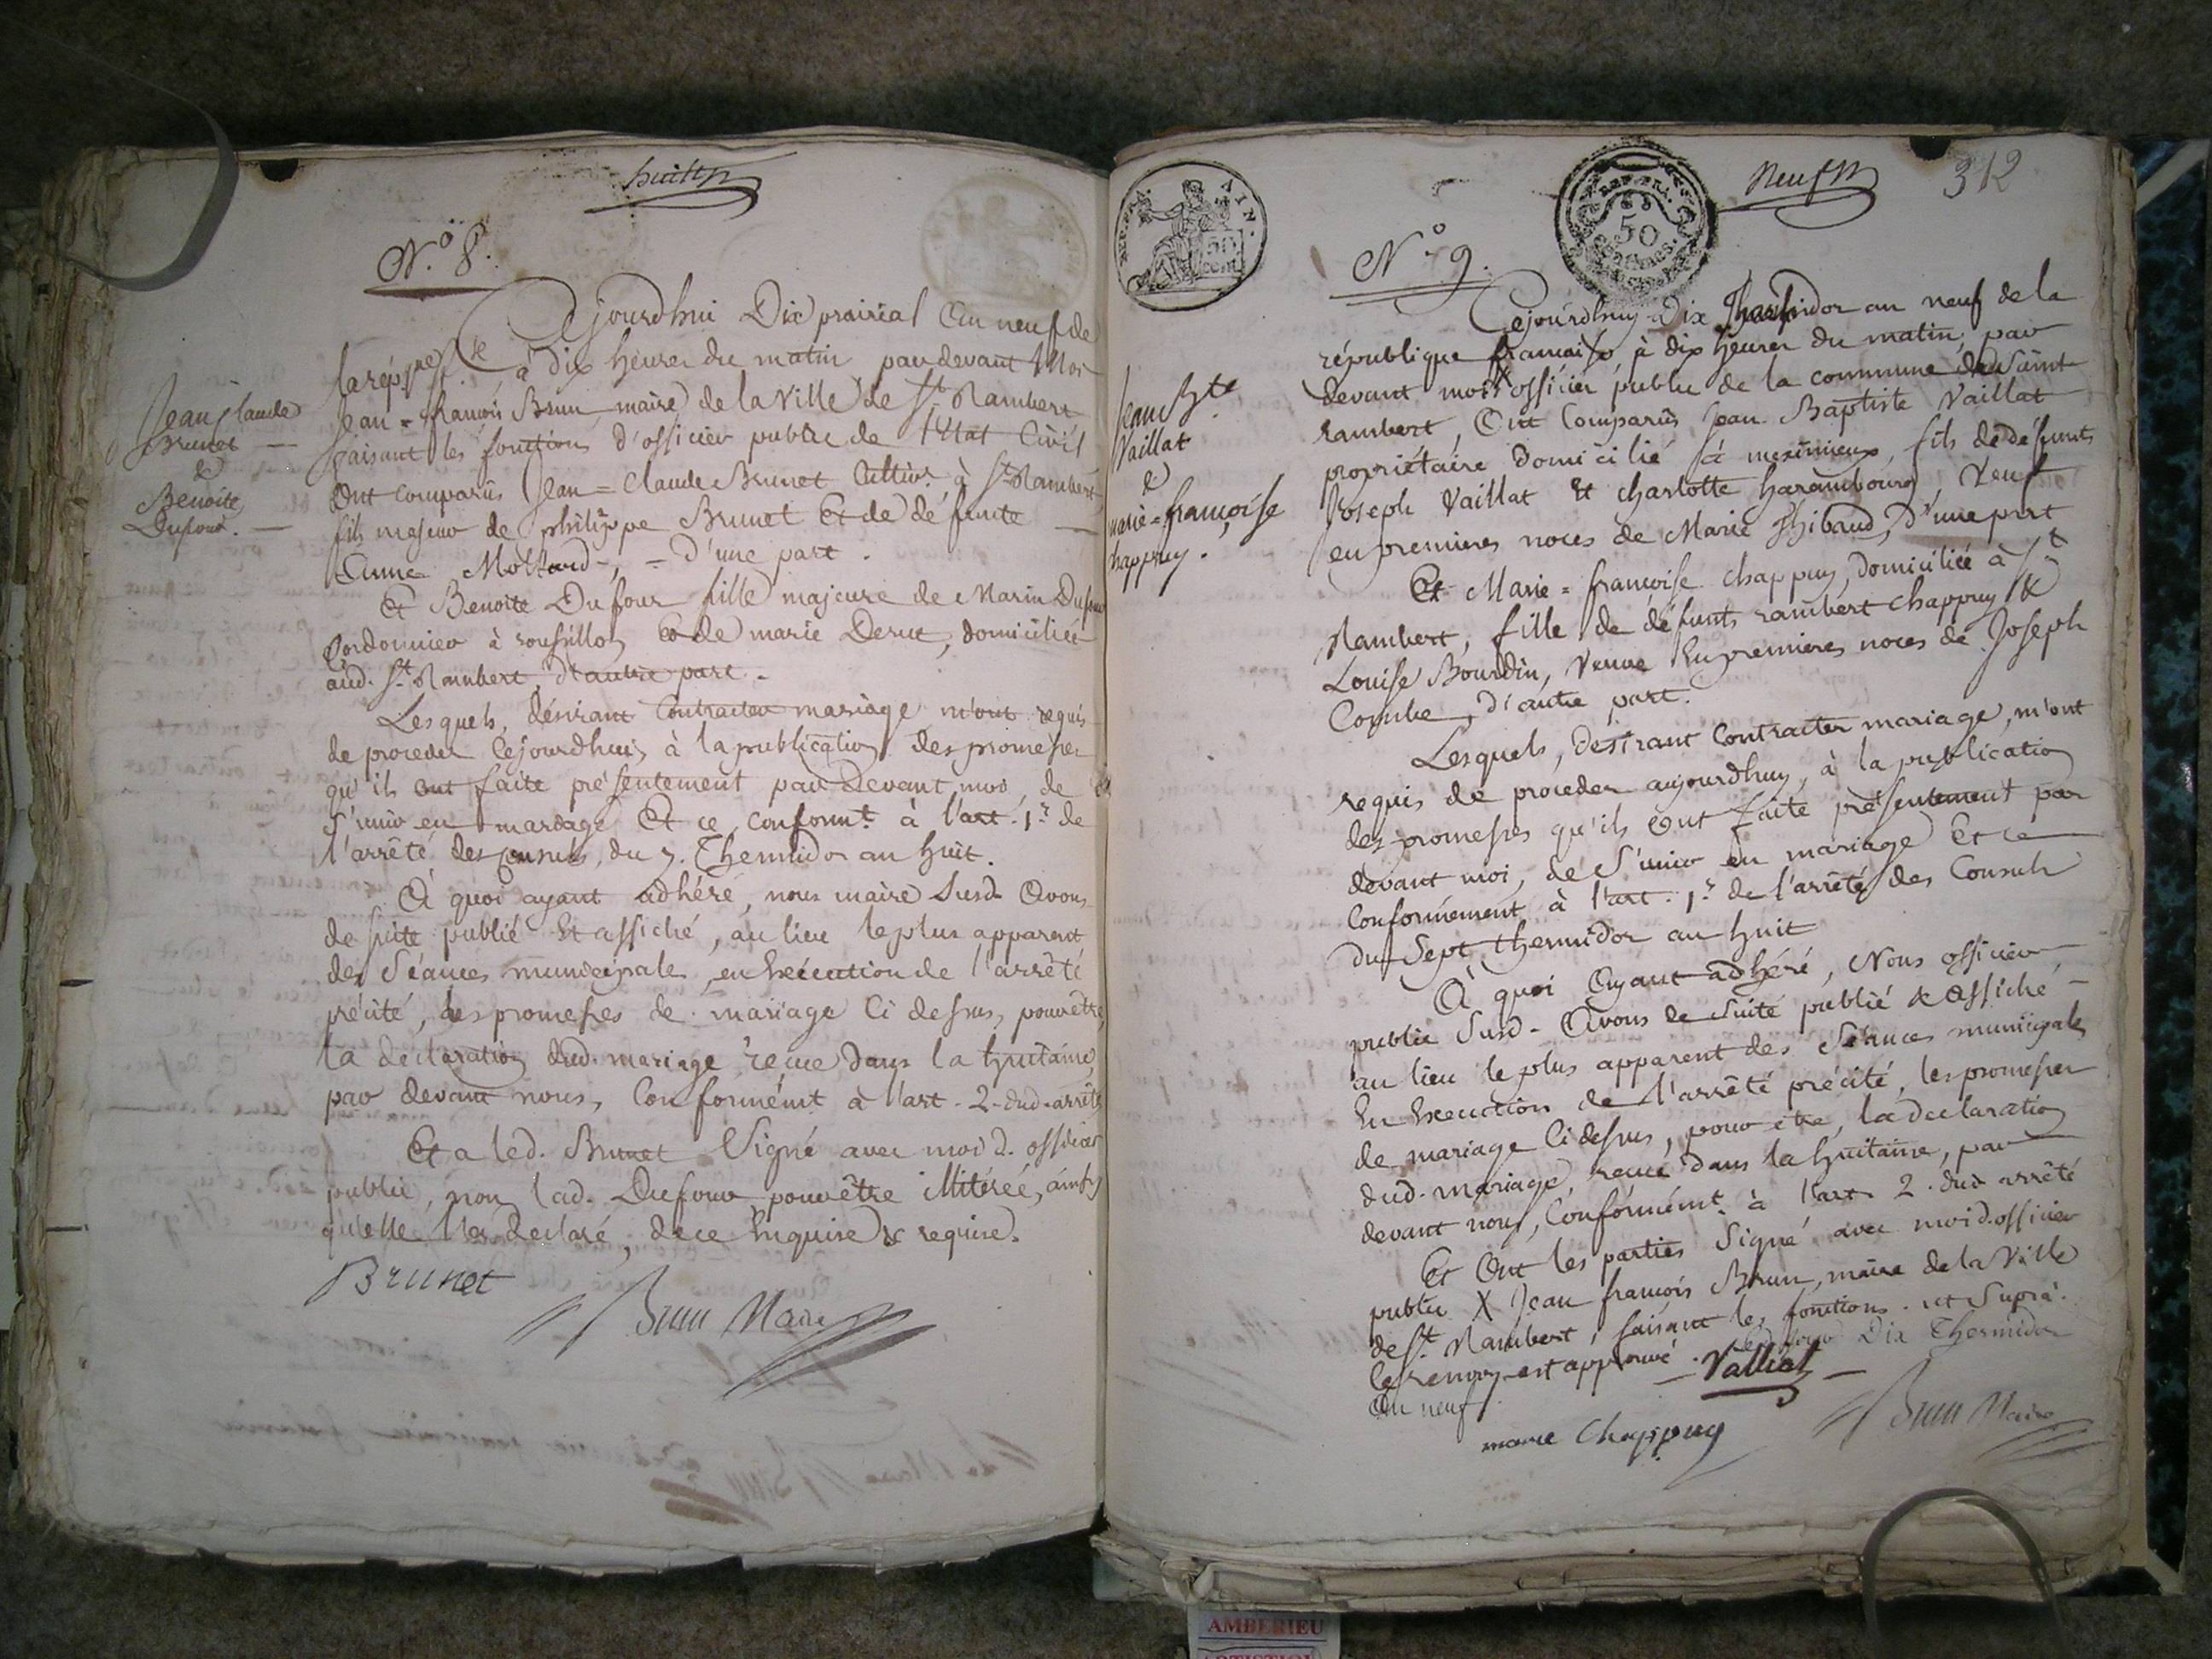 huit
N.º 8.
Cejourdhui Dix prairial an neuf de
la rép. fse à dix heures du matin, pardevant Moi
Jean = françois Brun, maire de la Ville de St. Rambert
faisant les fonctions d'officier public de l'Etat Civil
Ont comparûs Jean = Claude Brunet Cultivr. à St. Rambert,
fils majeur de philippe Brunet Et de défunte
Anne Mottard, = d'une part.
Et Benoite Dufour fille majeure de Marin Dufour
Cordonnier à Et de marie Derut, domiciliée
aud. St. Rambert, d'autre part.
Lesquels, désirant Contracter mariage m'ont requis
de proceder Cejourdhui, à la publication des promesses
qu'ils ont faite présentement par Devant moi, de
S'unir en mariage, Et ce conformt. à l'art. 1r. de
l'arrêté des Consuls, du 7. Thermidor an huit.
A quoi ayant adhéré, nous maire Susd. Avons
de suite publié Et affiché, au lieu le plus apparent
des Séances municipales, en Exécution de l'arrêté
précité, les promesses de mariage Ci dessus, pour être,
la declaration dud. mariage reçue dans la huitaine,
par devant nous, Conformémt à l'art. 2. dud. arrêté
Et a led. Brunet Signé avec moi d. officier
public, non lad. Dufour pour être illitérée, ainsy
qu'elle l'a declaré, de ce Enquise & requise.
Brunet
Brun Maire
Jean Claude
Brunet
&
Benoite
Dufour.
REP. FRA. AIN.
50
CENT.
REP. FRA.
50
Neuf
312
N.º 9.
Cejourdhuy Dix Thermidor an neuf de la
république française à dix heures du matin, par
devant moi X officier public de la commune de Saint
rambert, Ont Comparûs Jean Baptiste Vaillat
propriétaire domicilié à meximieux, fils de défunts
Joseph Vaillat Et charlotte harambourg Veuf
en premieres noces de Marie Thibaud, d'une part
Et Marie = françoise chappuy, domiciliée à St
Rambert, fille de défunts rambert chappuy &
Louise Bourdin, Veuve En premieres noces de Joseph
Combe, d'autre part.
Lesquels, desirant Contracter mariage, m'ont
requis de proceder aujourdhuy, à la publication
des promesses qu'ils Ont faite présentement par
devant moi, de S'unir en mariage Et ce
Conformément à l'art. 1r. de l'arrêté des Consuls
du Sept thermidor an huit
A quoi Ayant adhéré, Nous officier
public Susd. Avons de Suite publié & Affiché
au lieu le plus apparent des Séances municipales
En Execution de l'arrêté précité, les promesses
de mariage Ci dessus, pour être, la declaration
dud. mariage, reçue dans la huitaine, par
devant nous, Conformémt. à l'art. 2. dud. arrêté
Et Ont les parties Signé avec moi d. officier
public X Jean françois Brun, maire de la Ville
de St. Rambert, faisant les fonctions. ut Suprà.
le renvoy est approuvé. Led. jour Dix Thermidor
An neuf.
Valliat
marie Chappuy
Brun Maire
Jean Bte
Vaillat
&
marie = françoise
chappuy.
AMBERIEU